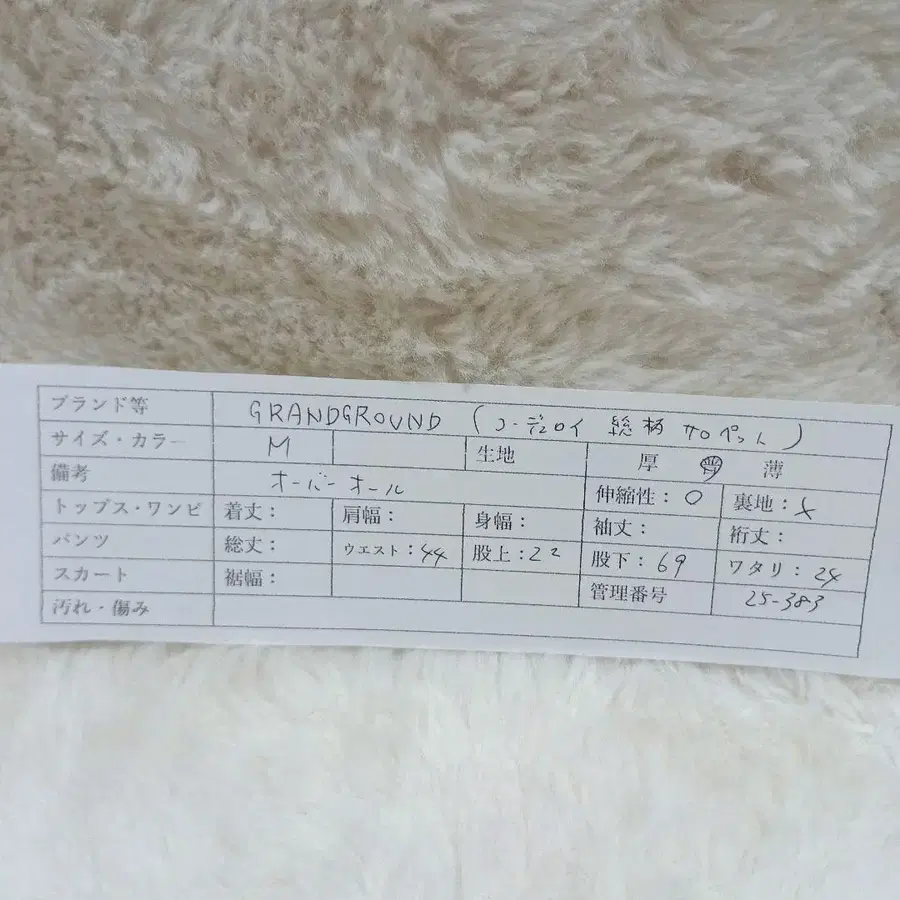 ブランド等 GRANDGROUND (コーデュロイ 総柄 サロペット)
サイズ・カラー M 生地 厚 普 薄
備考 オーバーオール 伸縮性:○ 裏地:×
トップス・ワンピ 着丈: 肩幅: 身幅: 袖丈: 裄丈:
パンツ 総丈: ウエスト:44 股上:22 股下:69 ワタリ:24
スカート 裾幅: 管理番号 25-383
汚れ・傷み